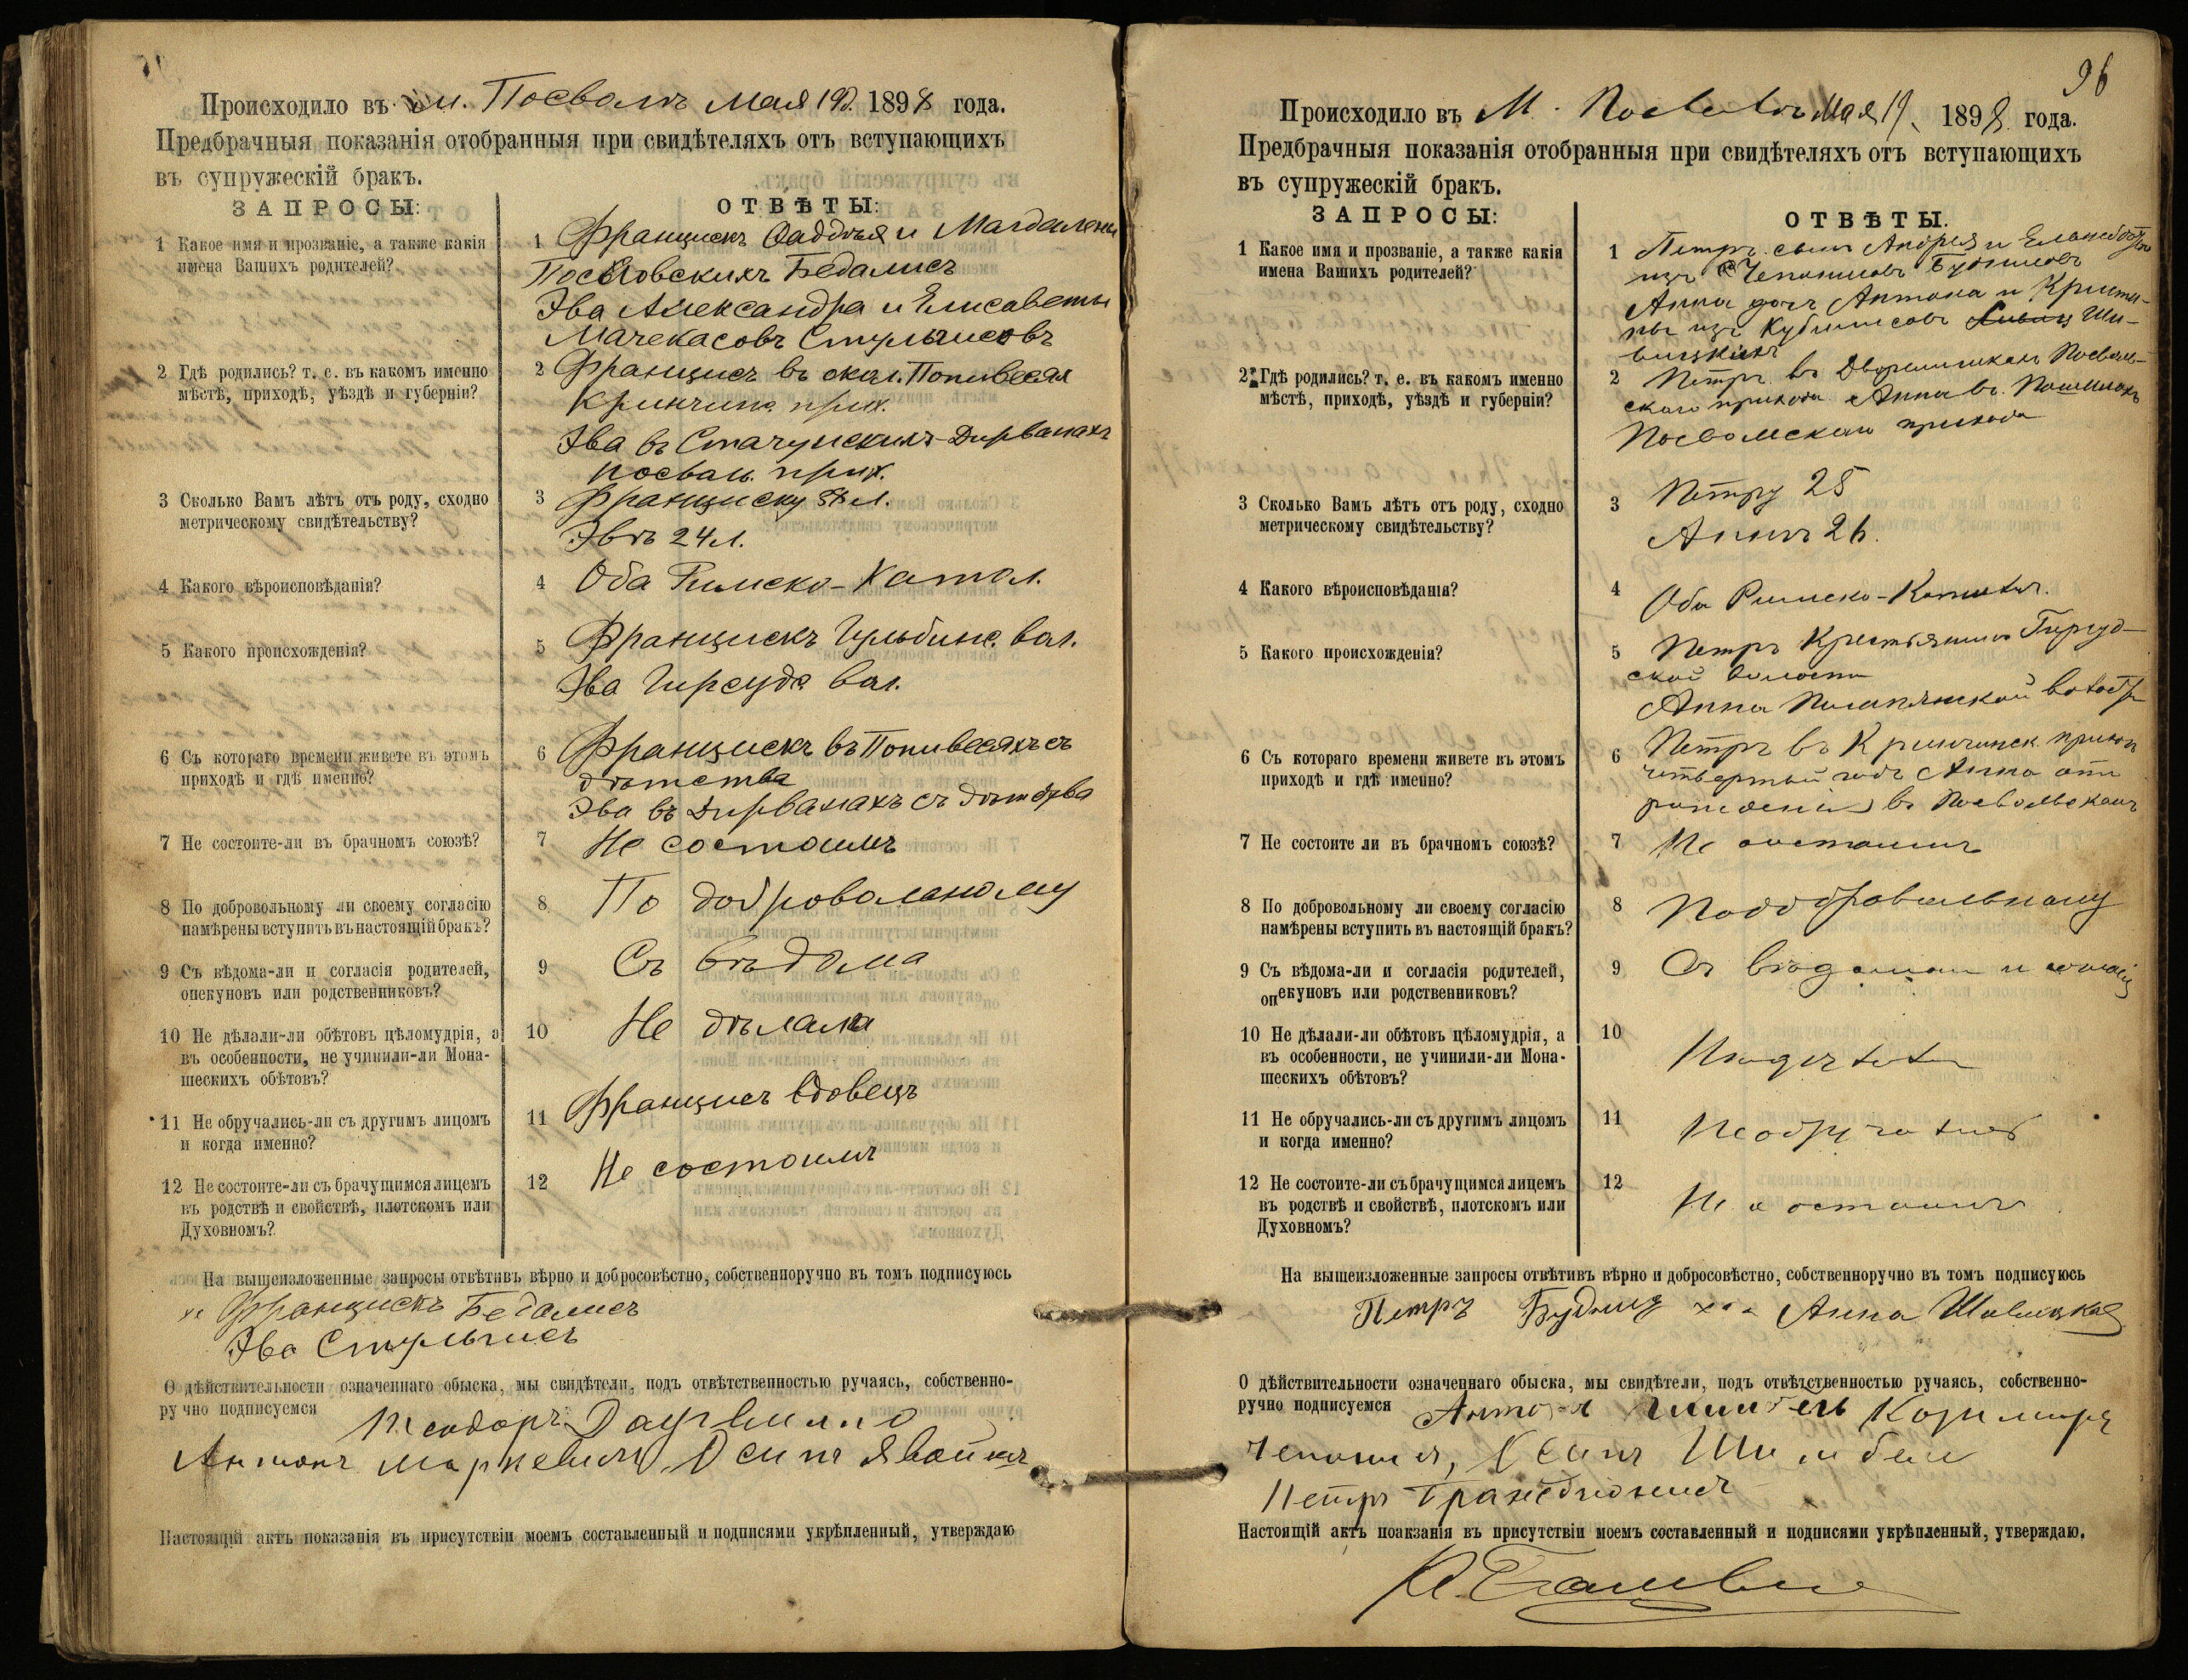 Происходило въ м. Посволь Мая 19д. 1898 года.
Предбрачныя показанія отобранныя при свидѣтеляхъ отъ вступающихъ
въ супружескій бракъ.
ЗАПРОСЫ:
ОТВѢТЫ:
1 Какое имя и прозваніе, а также какія
имена Вашихъ родителей?
1 Францискъ Фаддѣя и Магдалены
Бедалисъ
Эва Александра и Елисаветы
2 Гдѣ родились? т. е. въ какомъ именно
мѣстѣ, приходѣ, уѣздѣ и губерніи?
2 Францисъ въ окол. Попивесяя
Кринчинс. прих.
Эва въ Дирванахъ
посвол. прих.
3 Сколько Вамъ лѣтъ отъ роду, сходно
метрическому свидѣтельству?
3 Франциску л.
Эвѣ 24 л.
4 Какого вѣроисповѣданія?
4 Оба Римско-Катол.
5 Какого происхожденія?
5 Францискъ Гульбинс. вол.
Эва Гирсудс. вол.
6 Съ котораго времени живете въ этомъ
приходѣ и гдѣ именно?
6 Францискъ въ Попивесяхъ съ
дѣтства
Эва въ Дирванахъ съ дѣтства
7 Не состоите-ли въ брачномъ союзѣ?
7 Не состоимъ
8 По добровольному ли своему согласію
намѣрены вступить въ настоящій бракъ?
8 По добровольному
9 Съ вѣдома-ли и согласія родителей,
опекуновъ или родственниковъ?
9 Съ вѣдома
10 Не дѣлали-ли обѣтовъ цѣломудрія, а
въ особенности, не учинили-ли Мона-
шескихъ обѣтовъ?
10 Не дѣлали
11 Не обручались-ли съ другимъ лицомъ
и когда именно?
11 Францисъ вдовецъ
12 Не состоите-ли съ брачущимся лицемъ
въ родствѣ и свойствѣ, плотскомъ или
Духовномъ?
12 Не состоимъ
На вышеизложенные запросы отвѣтивъ вѣрно и добросовѣстно, собственноручно въ томъ подписуюсь
Францискъ Бедалисъ
Эва Стульгисъ
О дѣйствительности означеннаго обыска, мы свидѣтели, подъ отвѣтственностью ручаясь, собственно-
ручно подписуемся Теодоръ Даугвилло
Антонъ Маркевичъ, Осипъ
Настоящій актъ показанія въ присутствіи моемъ составленный и подписями укрѣпленный, утверждаю
96
Происходило въ М. Мая 19 1898 года.
Предбрачныя показанія отобранныя при свидѣтеляхъ отъ вступающихъ
въ супружескій бракъ.
ЗАПРОСЫ:
ОТВѢТЫ.
1 Какое имя и прозваніе, а также какія
имена Вашихъ родителей?
1 Петръ сынъ Андрея и
изъ
Анна дочь Антона и Кристи-
ны изъ Ши-
вицкихъ
2 Гдѣ родились? т. е. въ какомъ именно
мѣстѣ, приходѣ, уѣздѣ и губерніи?
2 Петръ въ Посволь-
скаго прихода Анна въ
Посвольскаго прихода
3 Сколько Вамъ лѣтъ отъ роду, сходно
метрическому свидѣтельству?
3 Петру 25
Аннѣ 26.
4 Какого вѣроисповѣданія?
4 Оба Римско-Католич.
5 Какого происхожденія?
5 Петръ Крестьянинъ Гирсуд-
ской волости
Анна
6 Съ котораго времени живете въ этомъ
приходѣ и гдѣ именно?
6 Петръ въ Кринчинск. приход
четвертый годъ Анна отъ
рожденія въ
7 Не состоите ли въ брачномъ союзѣ?
7 Не состоимъ
8 По добровольному ли своему согласію
намѣрены вступить въ настоящій бракъ?
8 По добровольному
9 Съ вѣдома-ли и согласія родителей,
опекуновъ или родственниковъ?
9 Съ вѣдома и
10 Не дѣлали-ли обѣтовъ цѣломудрія, а
въ особенности, не учинили-ли Мона-
шескихъ обѣтовъ?
10
11 Не обручались-ли съ другимъ лицомъ
и когда именно?
11 Не обручались
12 Не состоите-ли съ брачущимся лицемъ
въ родствѣ и свойствѣ, плотскомъ или
Духовномъ?
12 Не состоимъ
На вышеизложенные запросы отвѣтивъ вѣрно и добросовѣстно, собственноручно въ томъ подписуюсь
Петръ Анна Шивицкая
О дѣйствительности означеннаго обыска, мы свидѣтели, подъ отвѣтственностью ручаясь, собственно-
ручно подписуемся
Петръ
Настоящій актъ поакзанія въ присутствіи моемъ составленный и подписями укрѣпленный, утверждаю.